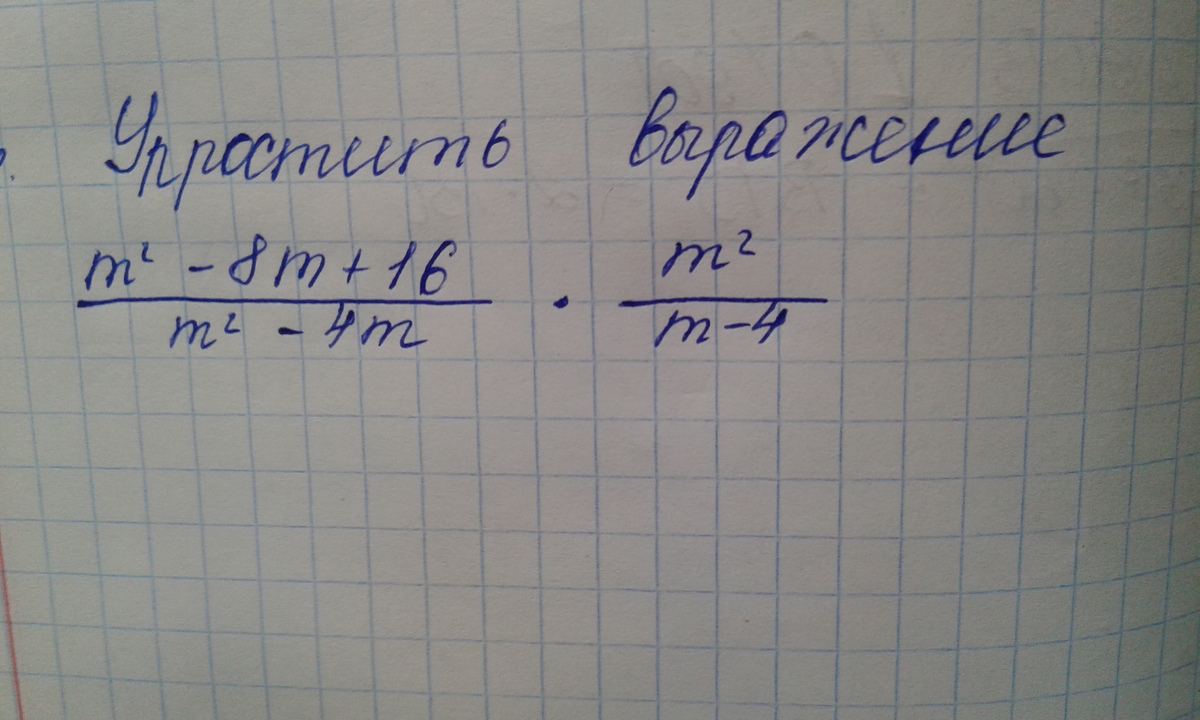 Упростить выражение
m² - 8m + 16 / m² - 4m · m² / m - 4